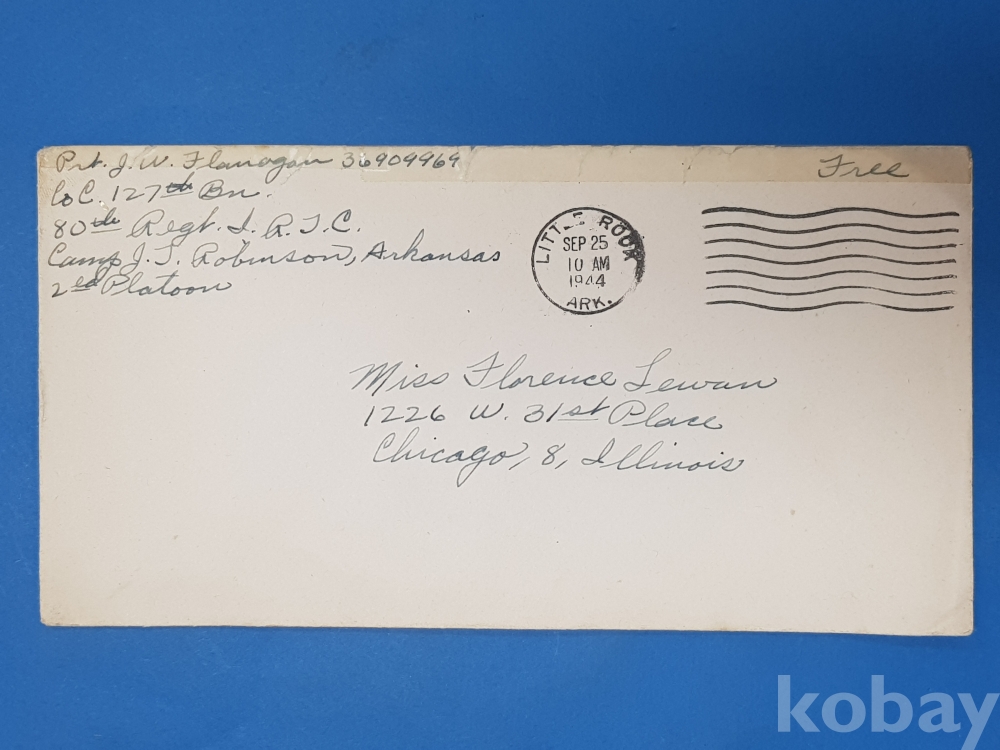 Pvt. J. W. Flanagan 36909969
Co C. 127th Bn.
80th Regt. I. R. T. C.
Camp J. T. Robinson, Arkansas
2ed Platoon
Free
LITTLE ROCK
SEP 25
10 AM
1944
ARK.
Miss Florence Lewan
1226 W. 31st Place
Chicago, 8, Illinois
kobay